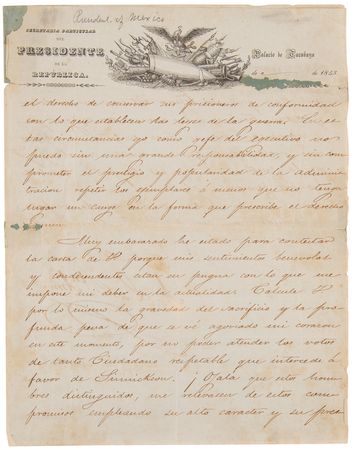 President of Mexico
SECRETARIA PARTICULAR
DEL
PRESIDENTE
DE LA
REPUBLICA.
Palacio de Tacubaya
de 1855
el derecho de conservar sus prisioneros de conformidad
con lo que establecen las leyes de la guerra. En es-
tas circunstancias yo como gefe del executivo no
puedo sin una grande responsabilidad, y sin com-
prometer el prestigio y popularidad de la adminis-
tracion repetir los ejemplares á menos que no tenga
lugar un cange en la forma que prescribe el derecho
Muy embarazado he estado para contestar
la carta de V porque mis sentimientos benevolos
y condecendentes estan en pugna con lo que me
impone mi deber en la actualidad. Calcule V
por lo mismo la gravedad del sacrificio y la pro-
funda pena de que se vé agoviado mi corazon
en este momento, por no poder atender los votos
de tanto Ciudadano respetable que intercede á
favor de ¡Ojala que estos hom-
bres distinguidos, me relevasen de estos com-
promisos empleando su alto caracter y su pres-